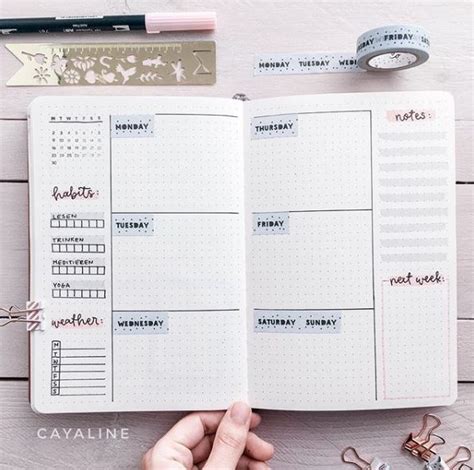 MONDAY TUESDAY WEDN
FRIDAY
M T W T F S S
habits:
LESEN
TRINKEN
MEDITIEREN
YOGA
weather:
M
T
W
T
F
S
S
MONDAY
TUESDAY
WEDNESDAY
THURSDAY
FRIDAY
SATURDAY SUNDAY
notes:
next week:
CAYALINE